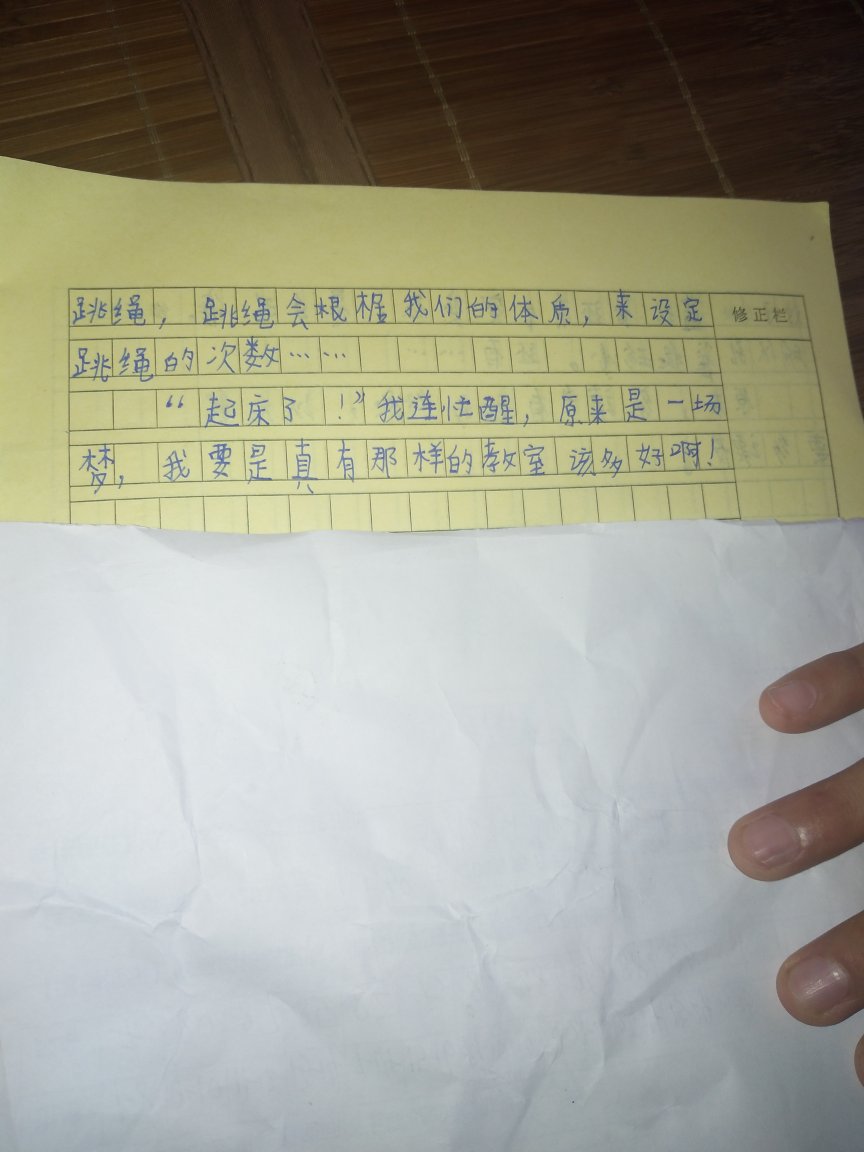 跳绳，跳绳会根据我们的体质，来设定
修正栏
跳绳的次数……
“起床了！”我连忙醒，原来是一场
梦，我要是真有那样的教室该多好啊！